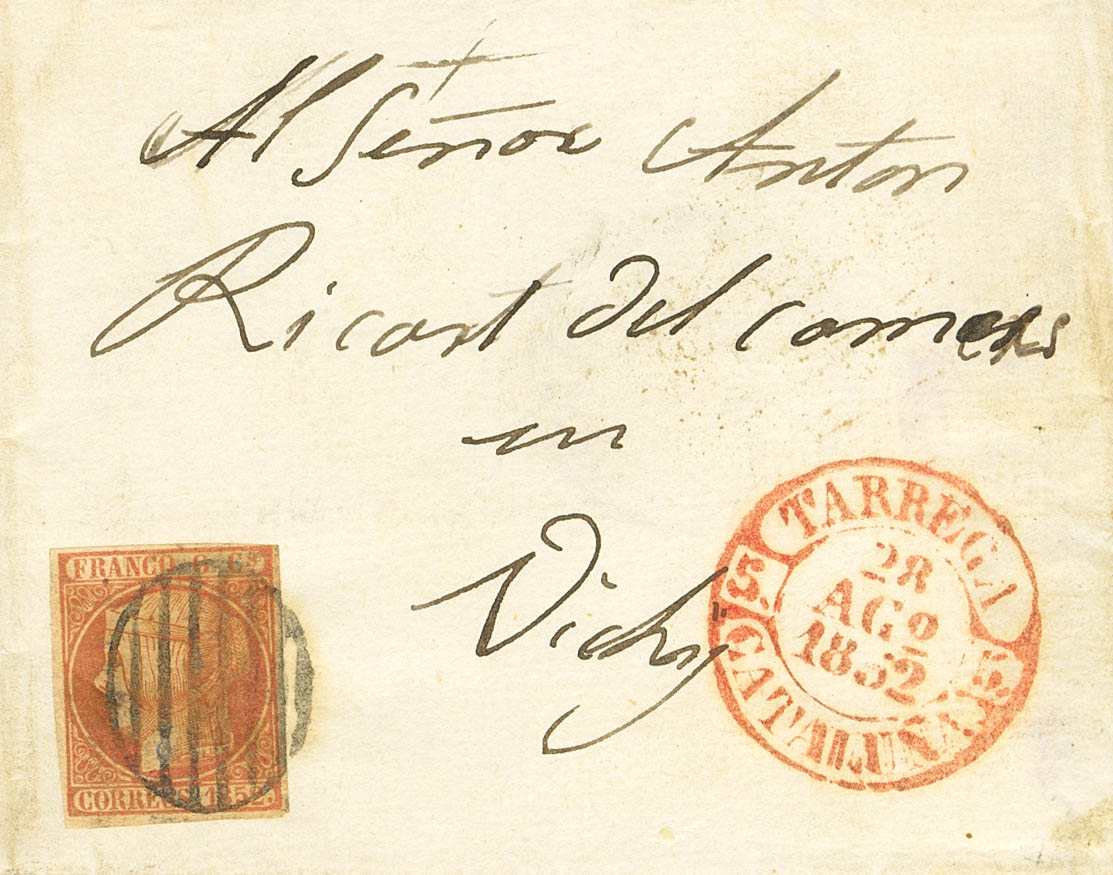 Al Señor Anton
Ricart del comercio
en
Vich
FRANCO. 6 Cs
CORREOS 1852.
TARREGA
28
AGO
1852
5. CATALUÑA. 5.